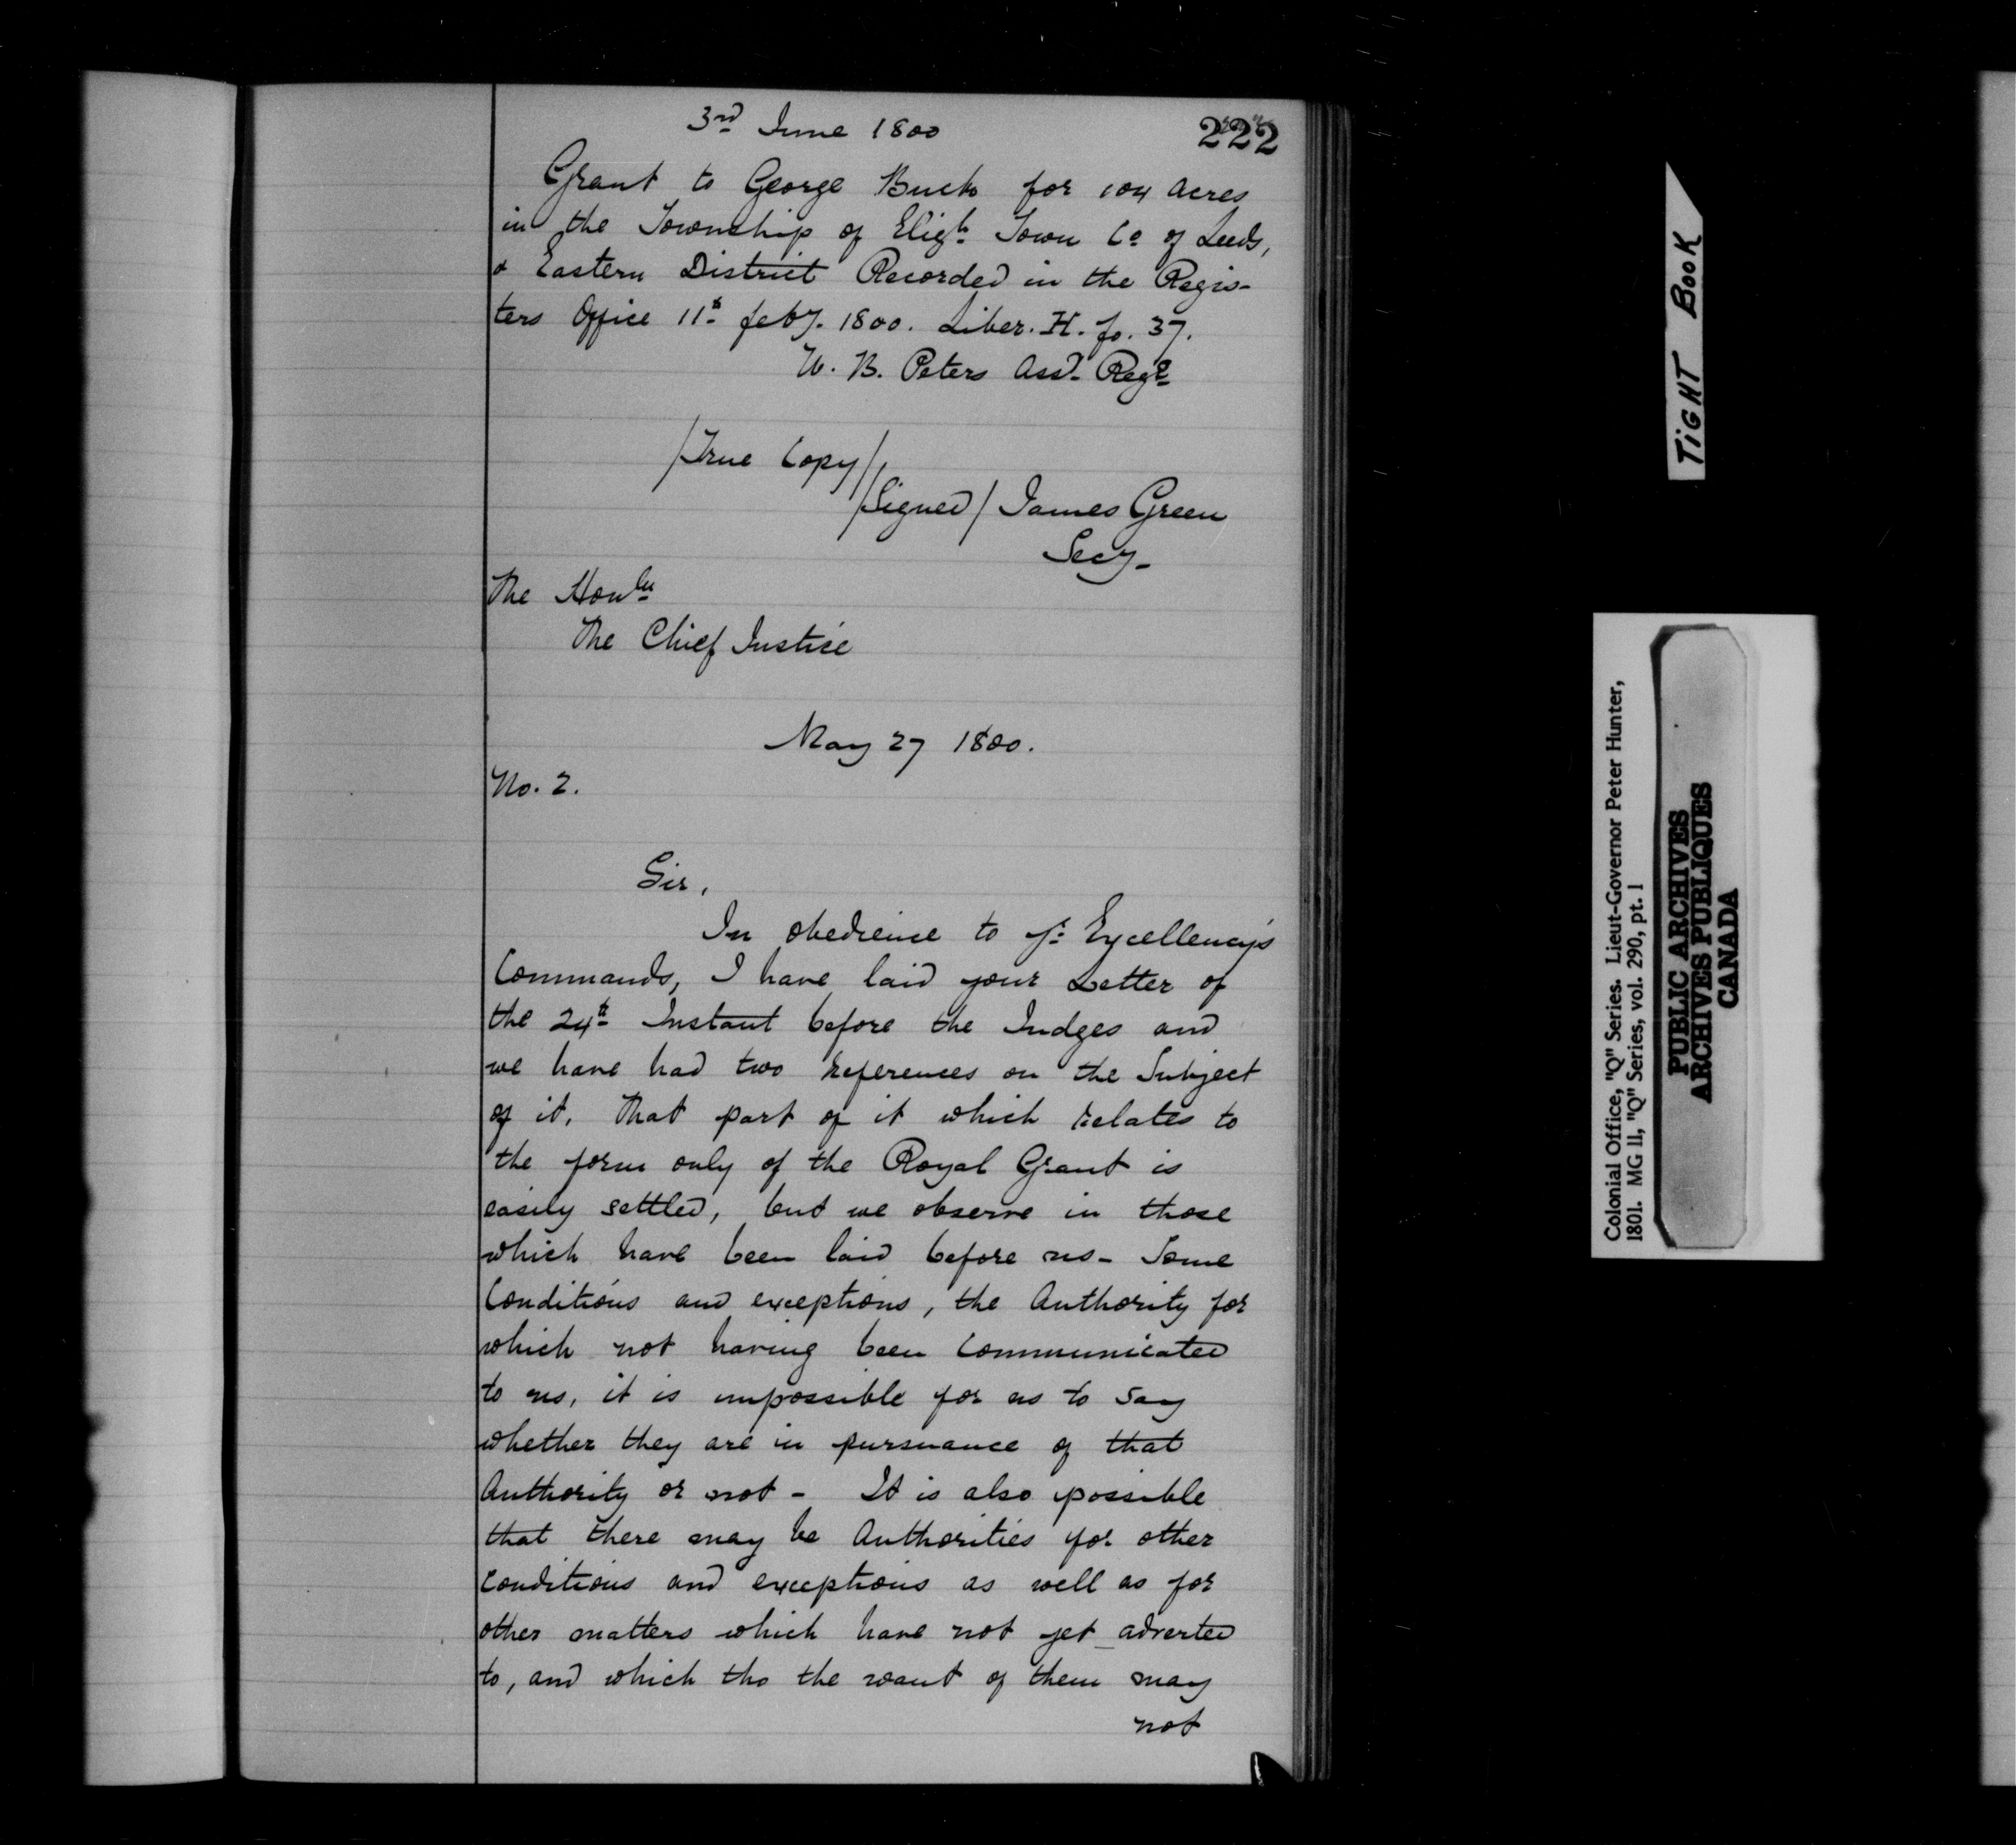 3rd June 1800
222
Grant to George Buck for 104 acres
in the Township of Eligh Town Co of Leeds,
& Eastern District Recorded in the Regis-
ters Office 11th feby. 1800. Liber. H. fo. 37.
W. B. Peters Asst. Regr
/True Copy/
/Signed/ James Green
Secy-
The Honble
The Chief Justice
May 27 1800.
No. 2.
Sir,
In obedience to yr Excellency's
Commands, I have laid your Letter of
the 24th Instant before the Judges and
we have had two references on the Subject
of it. That part of it which relates to
the form only of the Royal Grant is
easily settled, but we observe in those
which have been laid before us - Some
Conditions and exceptions, the Authority for
which not having been Communicated
to us, it is impossible for us to say
whether they are in pursuance of that
Authority or not - It is also possible
that there may be Authorities for other
Conditions and exceptions as well as for
other matters which have not yet adverted
to, and which tho the want of them may
not
TIGHT BOOK
Colonial Office, "Q" Series. Lieut-Governor Peter Hunter,
1801. MG 11, "Q" Series, vol. 290, pt. 1
PUBLIC ARCHIVES
ARCHIVES PUBLIQUES
CANADA